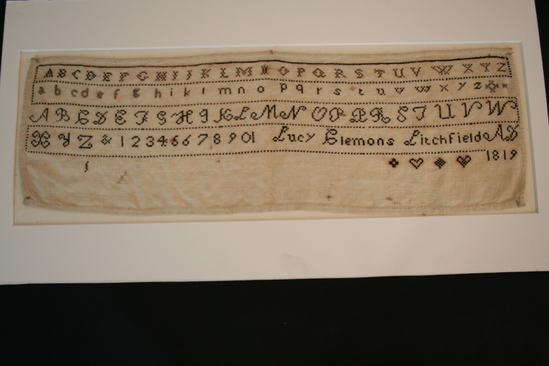 A B C D E F G H I J K L M N O P Q R S T U V W X Y Z
a b c d e f g h i k l m n o p q r s t u v w x y z
A B C D E F G H I K L M N O P Q R S T U V W
X Y Z & 1 2 3 4 5 6 7 8 9 0 1 Lucy Clemons Litchfield AD
1819